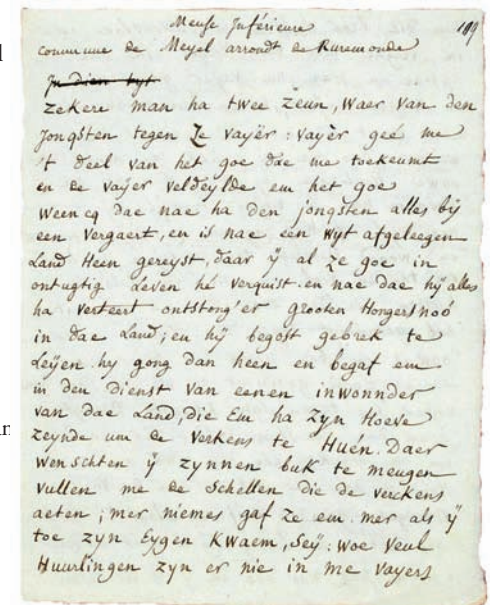 Meuse Inférieure 189
commune de Meyel arrondt de Ruremonde
In dien tyt
zekere man ha twee zeun, Waer van den
jongsten tegen ze vayër: vayèr geé me
't deel van het goe dae me toekeumt
en de vaÿer veldeylde em het goe
Weencq dae nae ha den jongsten alles bÿ
een vergaert, en is nae een wyt afgeleegen
Land Heen gereyst, daar ÿ al ze goe in
ontugtig Leven hé verquist. en nae dae hÿ alles
ha verteert ontstong'er grooten Hongersnoó
in dae Land; en hÿ begost gebrek te
Leÿen. hy gong dan heen en begaf em
in den dienst van eenen inwonnder
van dae Land, die Em ha zyn Hoeve
zeynde um de verkens te Huén. Daer
wenschten ÿ zynnen buk te meugen
vullen me de schellen die de verckens
aeten; mer niemes gaf ze em. mer als ÿ
toe zyn Eygen Kwaem, Seÿ: woe veul
Huurlingen zyn er nie in me vayers